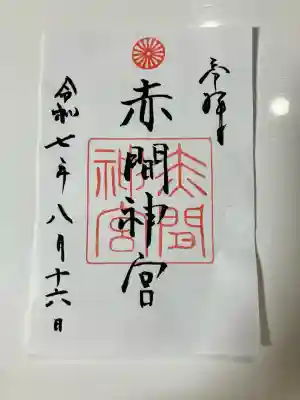 奉拝
赤間神宮
赤間
神宮
令和七年八月十六日